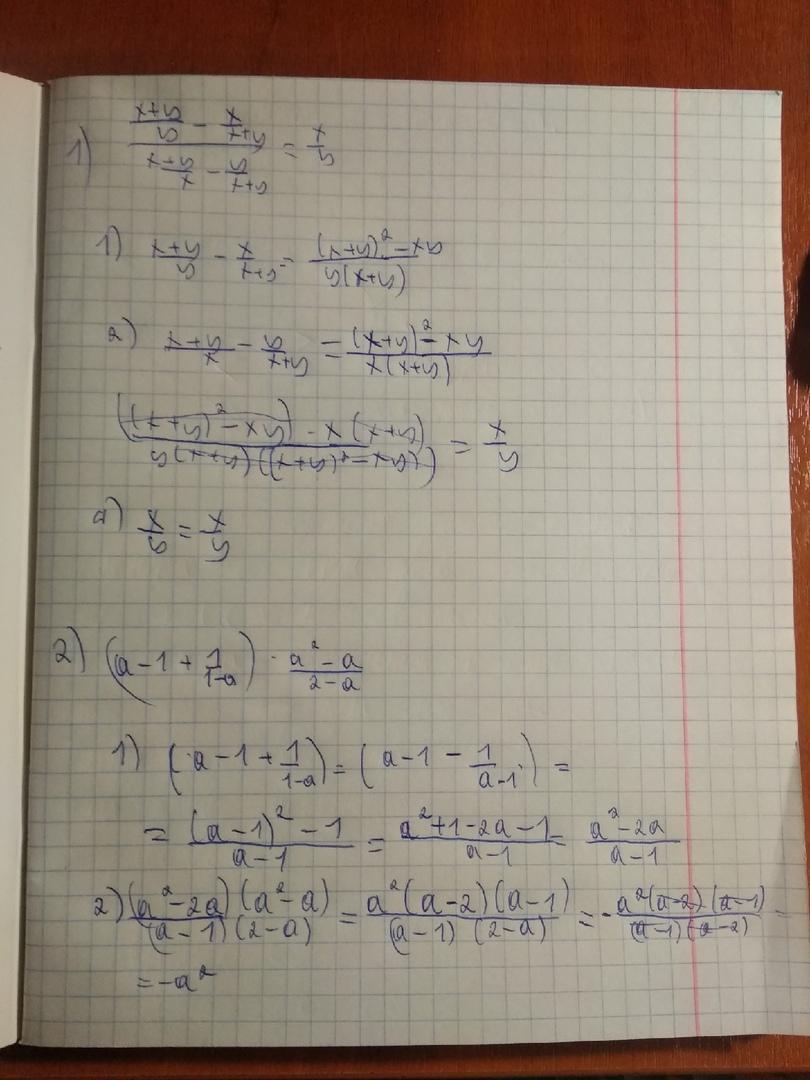 1) ((x+y)/y - x/(x+y)) / ((x+y)/x - y/(x+y)) = x/y
1) (x+y)/y - x/(x+y) = ((x+y)² - xy)/(y(x+y))
2) (x+y)/x - y/(x+y) = ((x+y)² - xy)/(x(x+y))
(((x+y)² - xy) · x(x+y))/(y(x+y)((x+y)² - xy)) = x/y
a) x/y = x/y
2) (a-1+1/(1-a)) · (a²-a)/(2-a)
1) (a-1+1/(1-a)) = (a-1 - 1/(a-1)) =
= ((a-1)²-1)/(a-1) = (a²+1-2a-1)/(a-1) = (a²-2a)/(a-1)
2) ((a²-2a)(a²-a))/((a-1)(2-a)) = (a²(a-2)(a-1))/((a-1)(2-a)) = -(a²(a-2)(a-1))/((a-1)(a-2)) =
= -a²